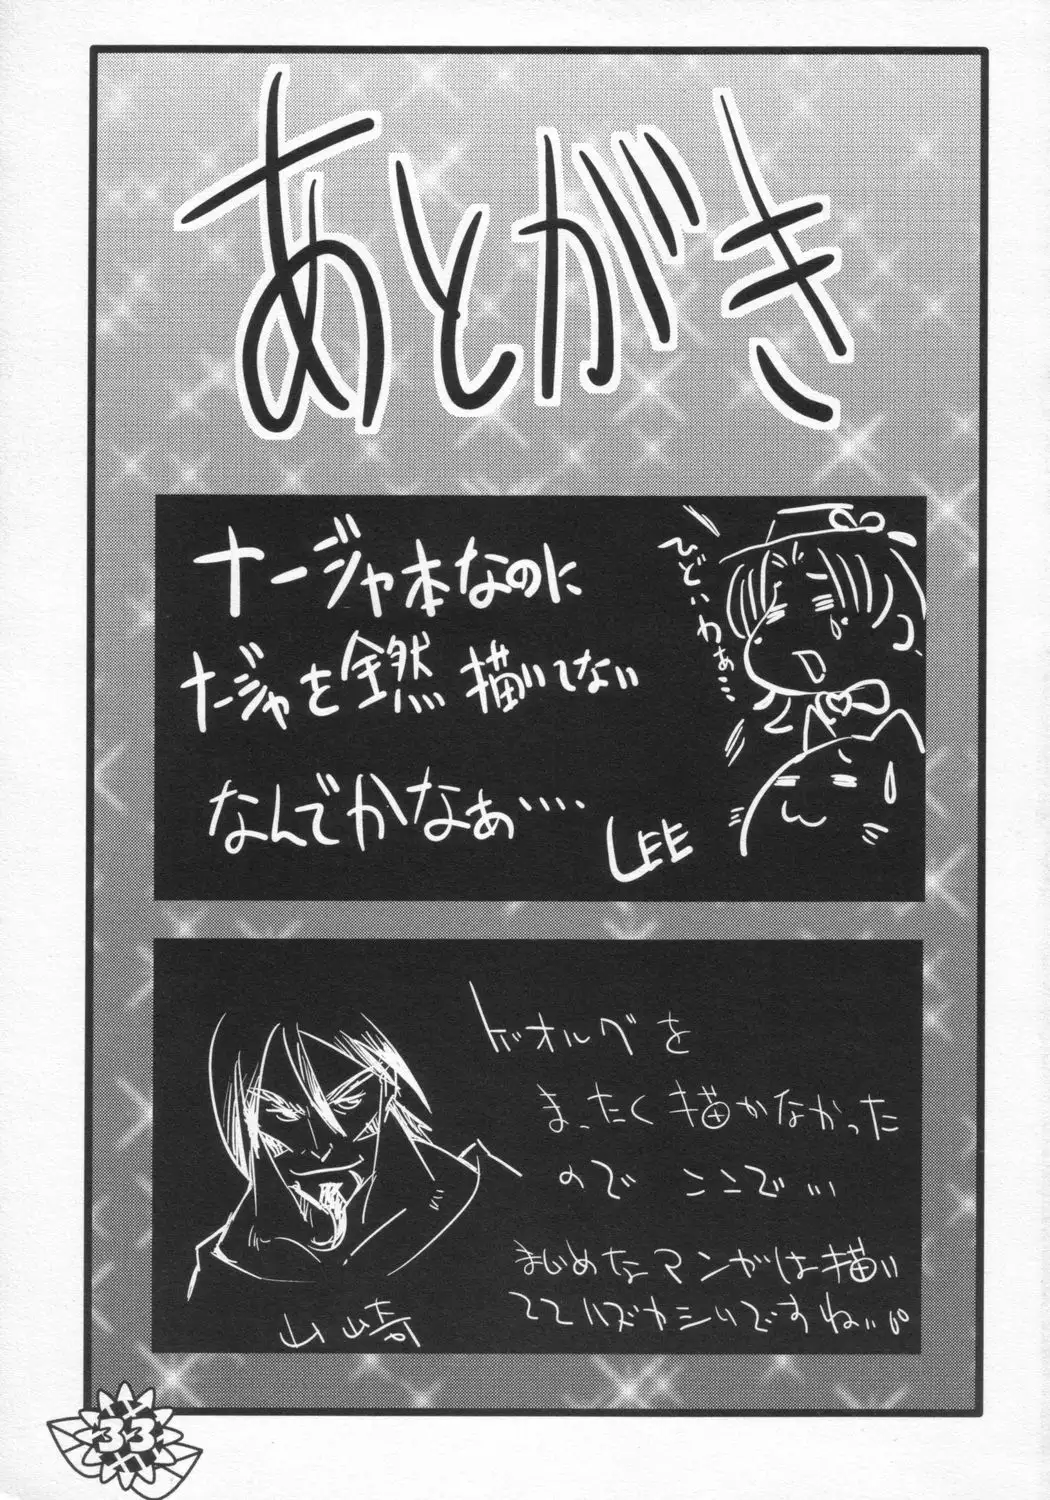 あとがき
ナージャ本なのに
ナージャを全然描いてない
なんでかなぁ‥‥
LEE
ひどいわぁ…
ゲオルグを
まったく描かなかった
のでここで…
まじめなマンガは描い
ててハズカシいですねぃ。
山崎
33